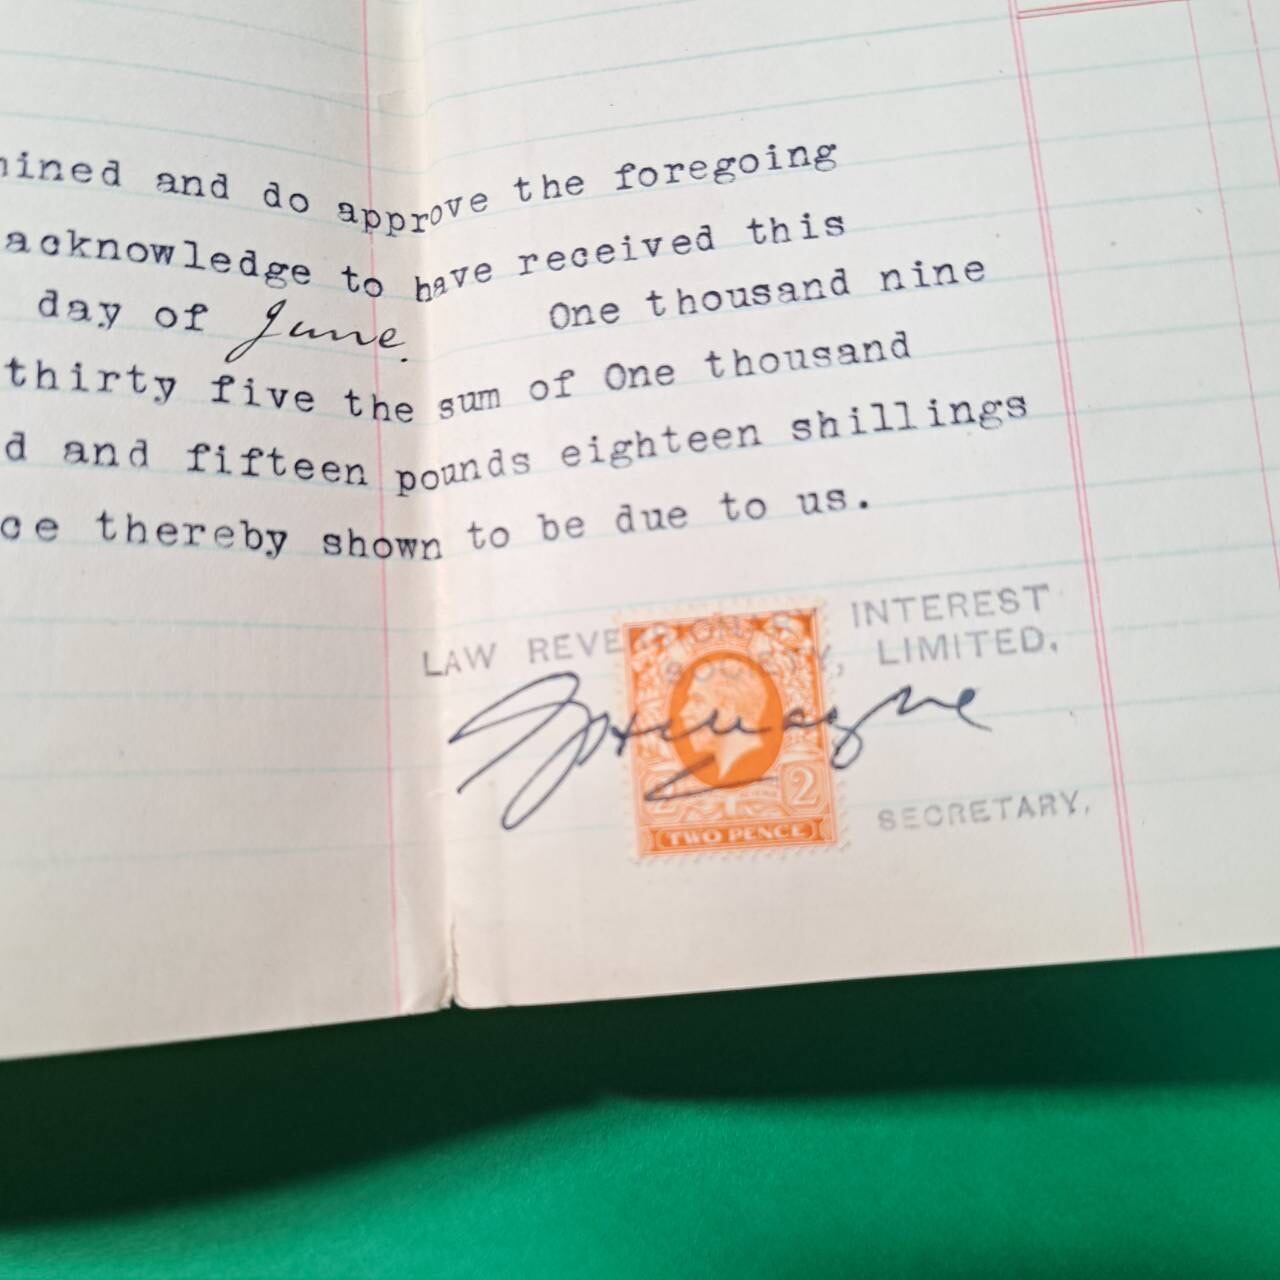 ined and do approve the foregoing
acknowledge to have received this
day of June. One thousand nine
thirty five the sum of One thousand
d and fifteen pounds eighteen shillings
ce thereby shown to be due to us.
LAW REVERSIONARY INTEREST
SOCIETY, LIMITED.
2
TWO PENCE
SECRETARY.